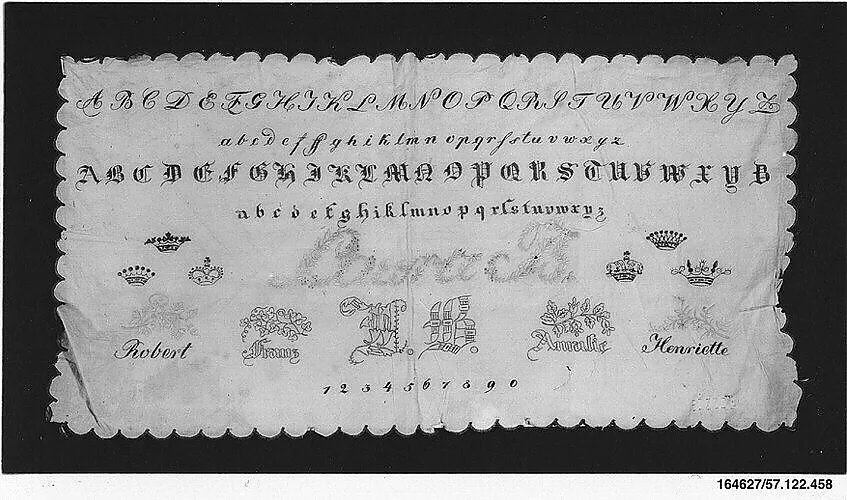 A B C D E F G H I K L M N O P Q R S T U V W X Y Z
a b c d e f ff g h i k l m n o p q r ſ s t u v w x y z
A B C D E F G H I K L M N O P Q R S T U V W X Y Z
a b c d e f g h i k l m n o p q r ſ s t u v w x y z
Robert Franz Amalie Henriette
1 2 3 4 5 6 7 8 9 0
164627/57.122.458